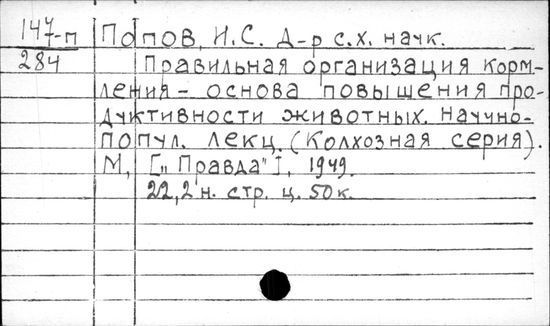 147-п Попов, И.С. Д-р с.х. наук.
284 Правильная организация корм-
ления - основа повышения про-
дуктивности животных. Научно-
попул. лекц. (Колхозная серия).
М, ["Правда"], 1949.
22,2 н. стр. ц. 50к.